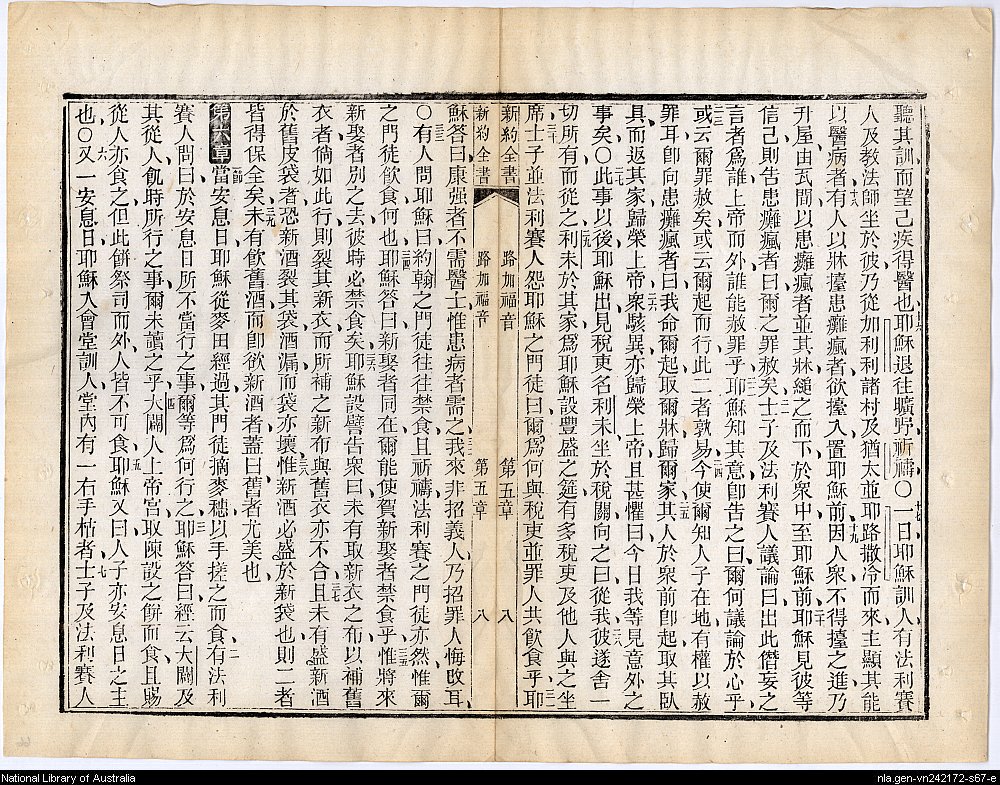 聽其訓而望己疾得醫也耶穌退往曠野祈禱○一日耶穌訓人有法利賽
人及教法師坐於彼乃從加利利諸村及猶太並耶路撒冷而來主顯其能
以醫病者有人以牀擡患癱瘋者欲擡入置耶穌前因人衆不得擡之進乃
升屋由瓦間以患癱瘋者並其牀縋之而下於衆中至耶穌前耶穌見彼等
信己則告患癱瘋者曰爾之罪赦矣士子及法利賽人議論曰出此僭妄之
言者爲誰上帝而外誰能赦罪乎耶穌知其意卽告之曰爾何議論於心乎
或云爾罪赦矣或云爾起而行此二者孰易今使爾知人子在地有權以赦
罪耳卽向患癱瘋者曰我命爾起取爾牀歸爾家其人於衆前卽起取其臥
具而返其家歸榮上帝衆駭異亦歸榮上帝且甚懼曰今日我等見意外之
事矣○此事以後耶穌出見稅吏名利未坐於稅關向之曰從我彼遂舍一
切所有而從之利未於其家爲耶穌設豐盛之筵有多稅吏及他人與之坐
席士子並法利賽人怨耶穌之門徒曰爾爲何與稅吏並罪人共飲食乎耶
新約全書 路加福音 第五章 八
新約全書 路加福音 第五章 八
穌答曰康强者不需醫士惟患病者需之我來非招義人乃招罪人悔改耳
○有人問耶穌曰約翰之門徒往往禁食且祈禱法利賽之門徒亦然惟爾
之門徒飲食何也耶穌答曰新娶者同在爾能使賀新娶者禁食乎惟將來
新娶者別之去彼時必禁食矣耶穌設譬告衆曰未有取新衣之布以補舊
衣者倘如此行則裂其新衣而所補之新布與舊衣亦不合且未有盛新酒
於舊皮袋者恐新酒裂其袋酒漏而袋亦壞惟新酒必盛於新袋也則二者
皆得保全矣未有飲舊酒而卽欲新酒者蓋曰舊者尤美也
第六章當安息日耶穌從麥田經過其門徒摘麥穗以手搓之而食有法利
賽人問曰於安息日所不當行之事爾等爲何行之耶穌答曰經云大闢及
其從人飢時所行之事爾未讀之乎大闢入上帝宮取陳設之餅而食且賜
從人亦食之但此餅祭司而外人皆不可食耶穌又曰人子亦安息日之主
也○又一安息日耶穌入會堂訓人堂內有一右手枯者士子及法利賽人
National Library of Australia
nla.gen-vn242172-s67-e